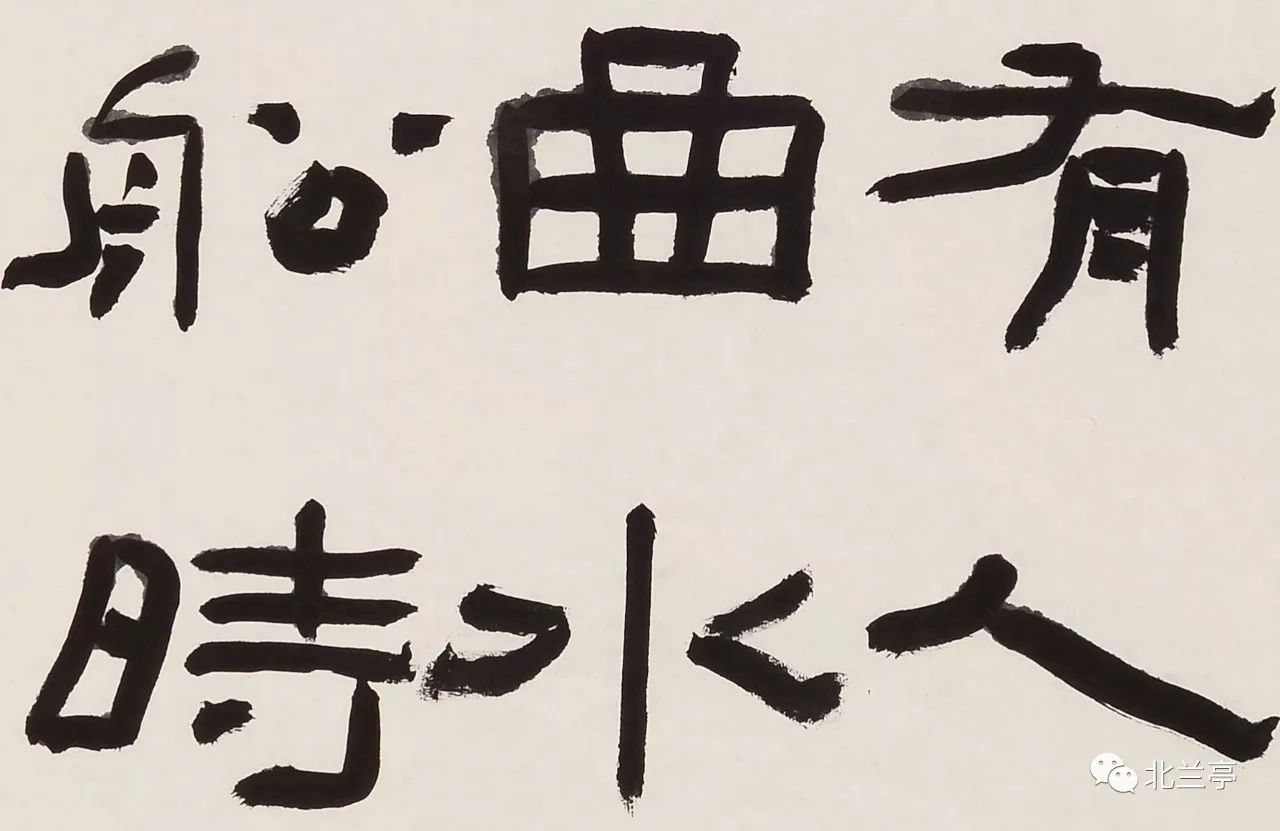 有人
曲水
舩時
北兰亭